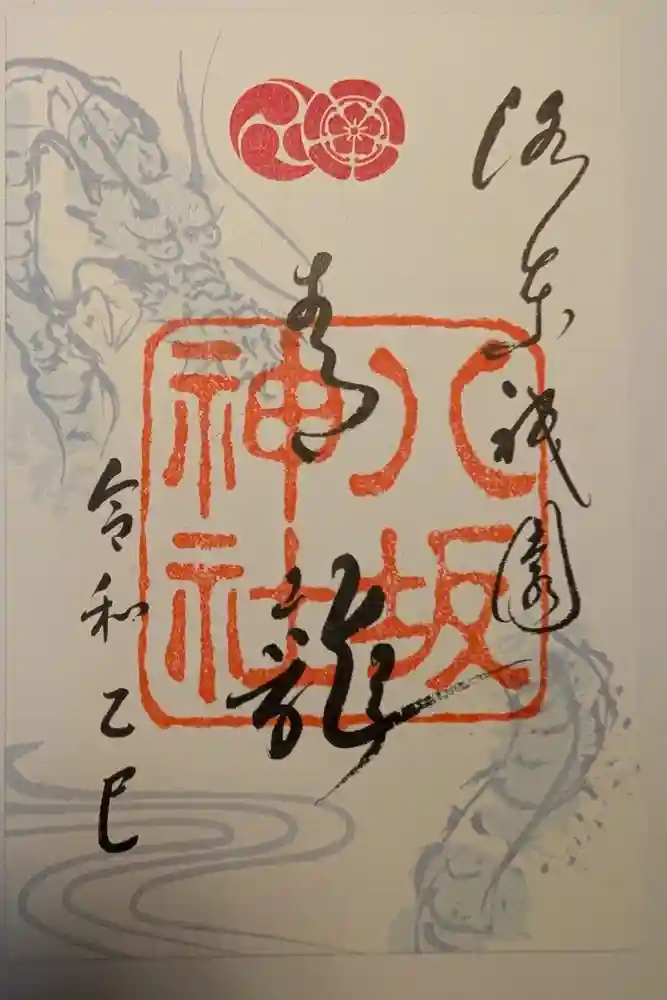 洛東祇園
八坂
神社
青龍
令和乙巳